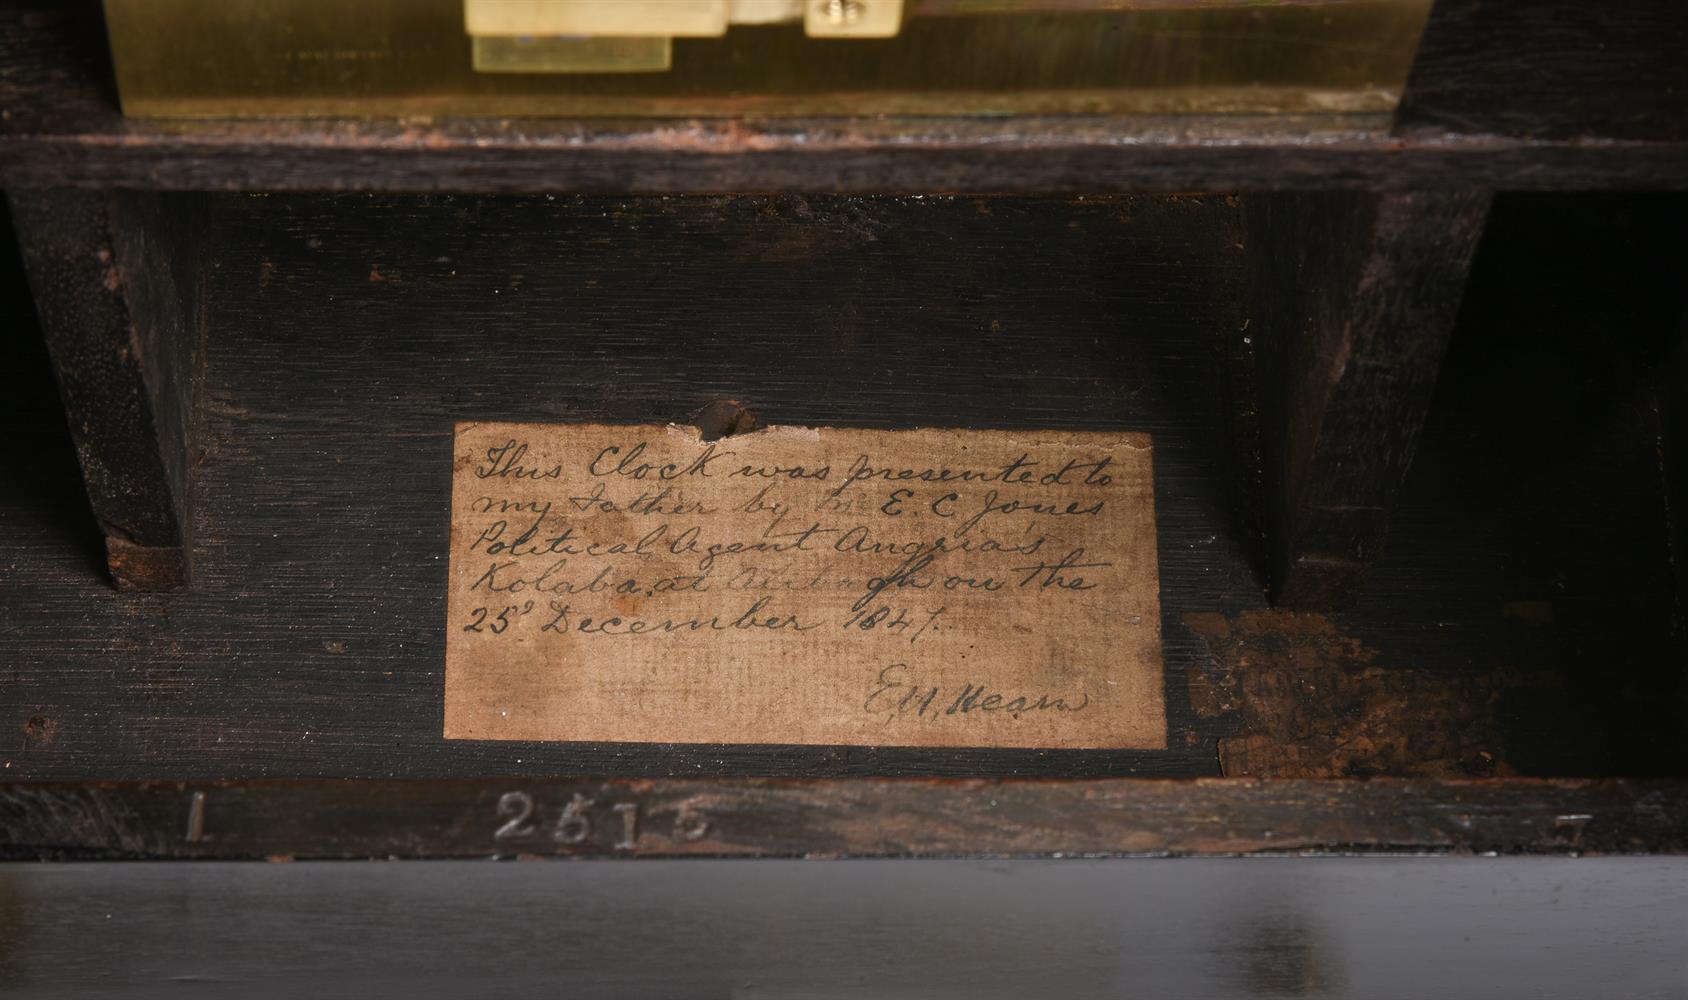 This Clock was presented to
my Father by Mr E. C Jones
Political Agent Angria's
Kolaba, at on the
25th December 1847.
E, H, Hearn
1 2515